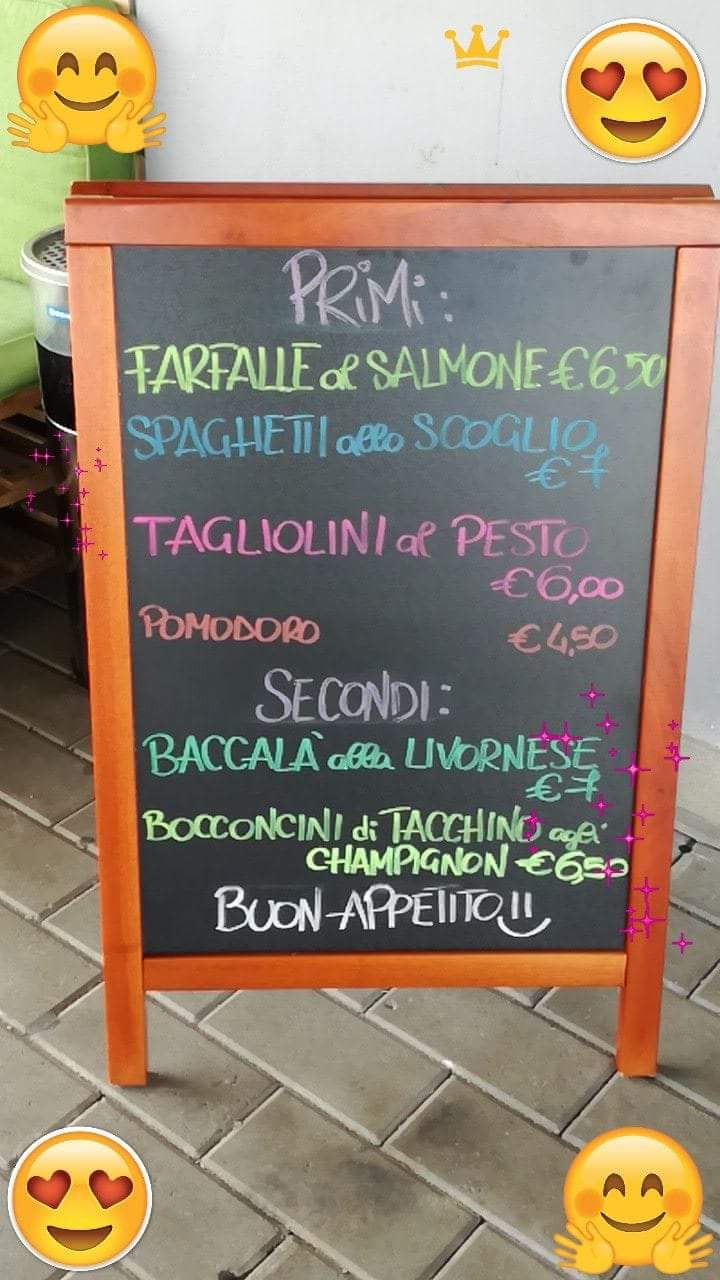 PRiMi:
FARFALLE al SALMONE €6,50
SPAGHETTI allo SCOGLIO
€ 7
TAGLIOLINI al PESTO
€6,00
POMODORO € 4,50
SECONDI:
BACCALÀ alla LIVORNESE
€ 7
BOCCONCINI di TACCHINO agli
CHAMPIGNON €6,50
BUON APPETITO!!